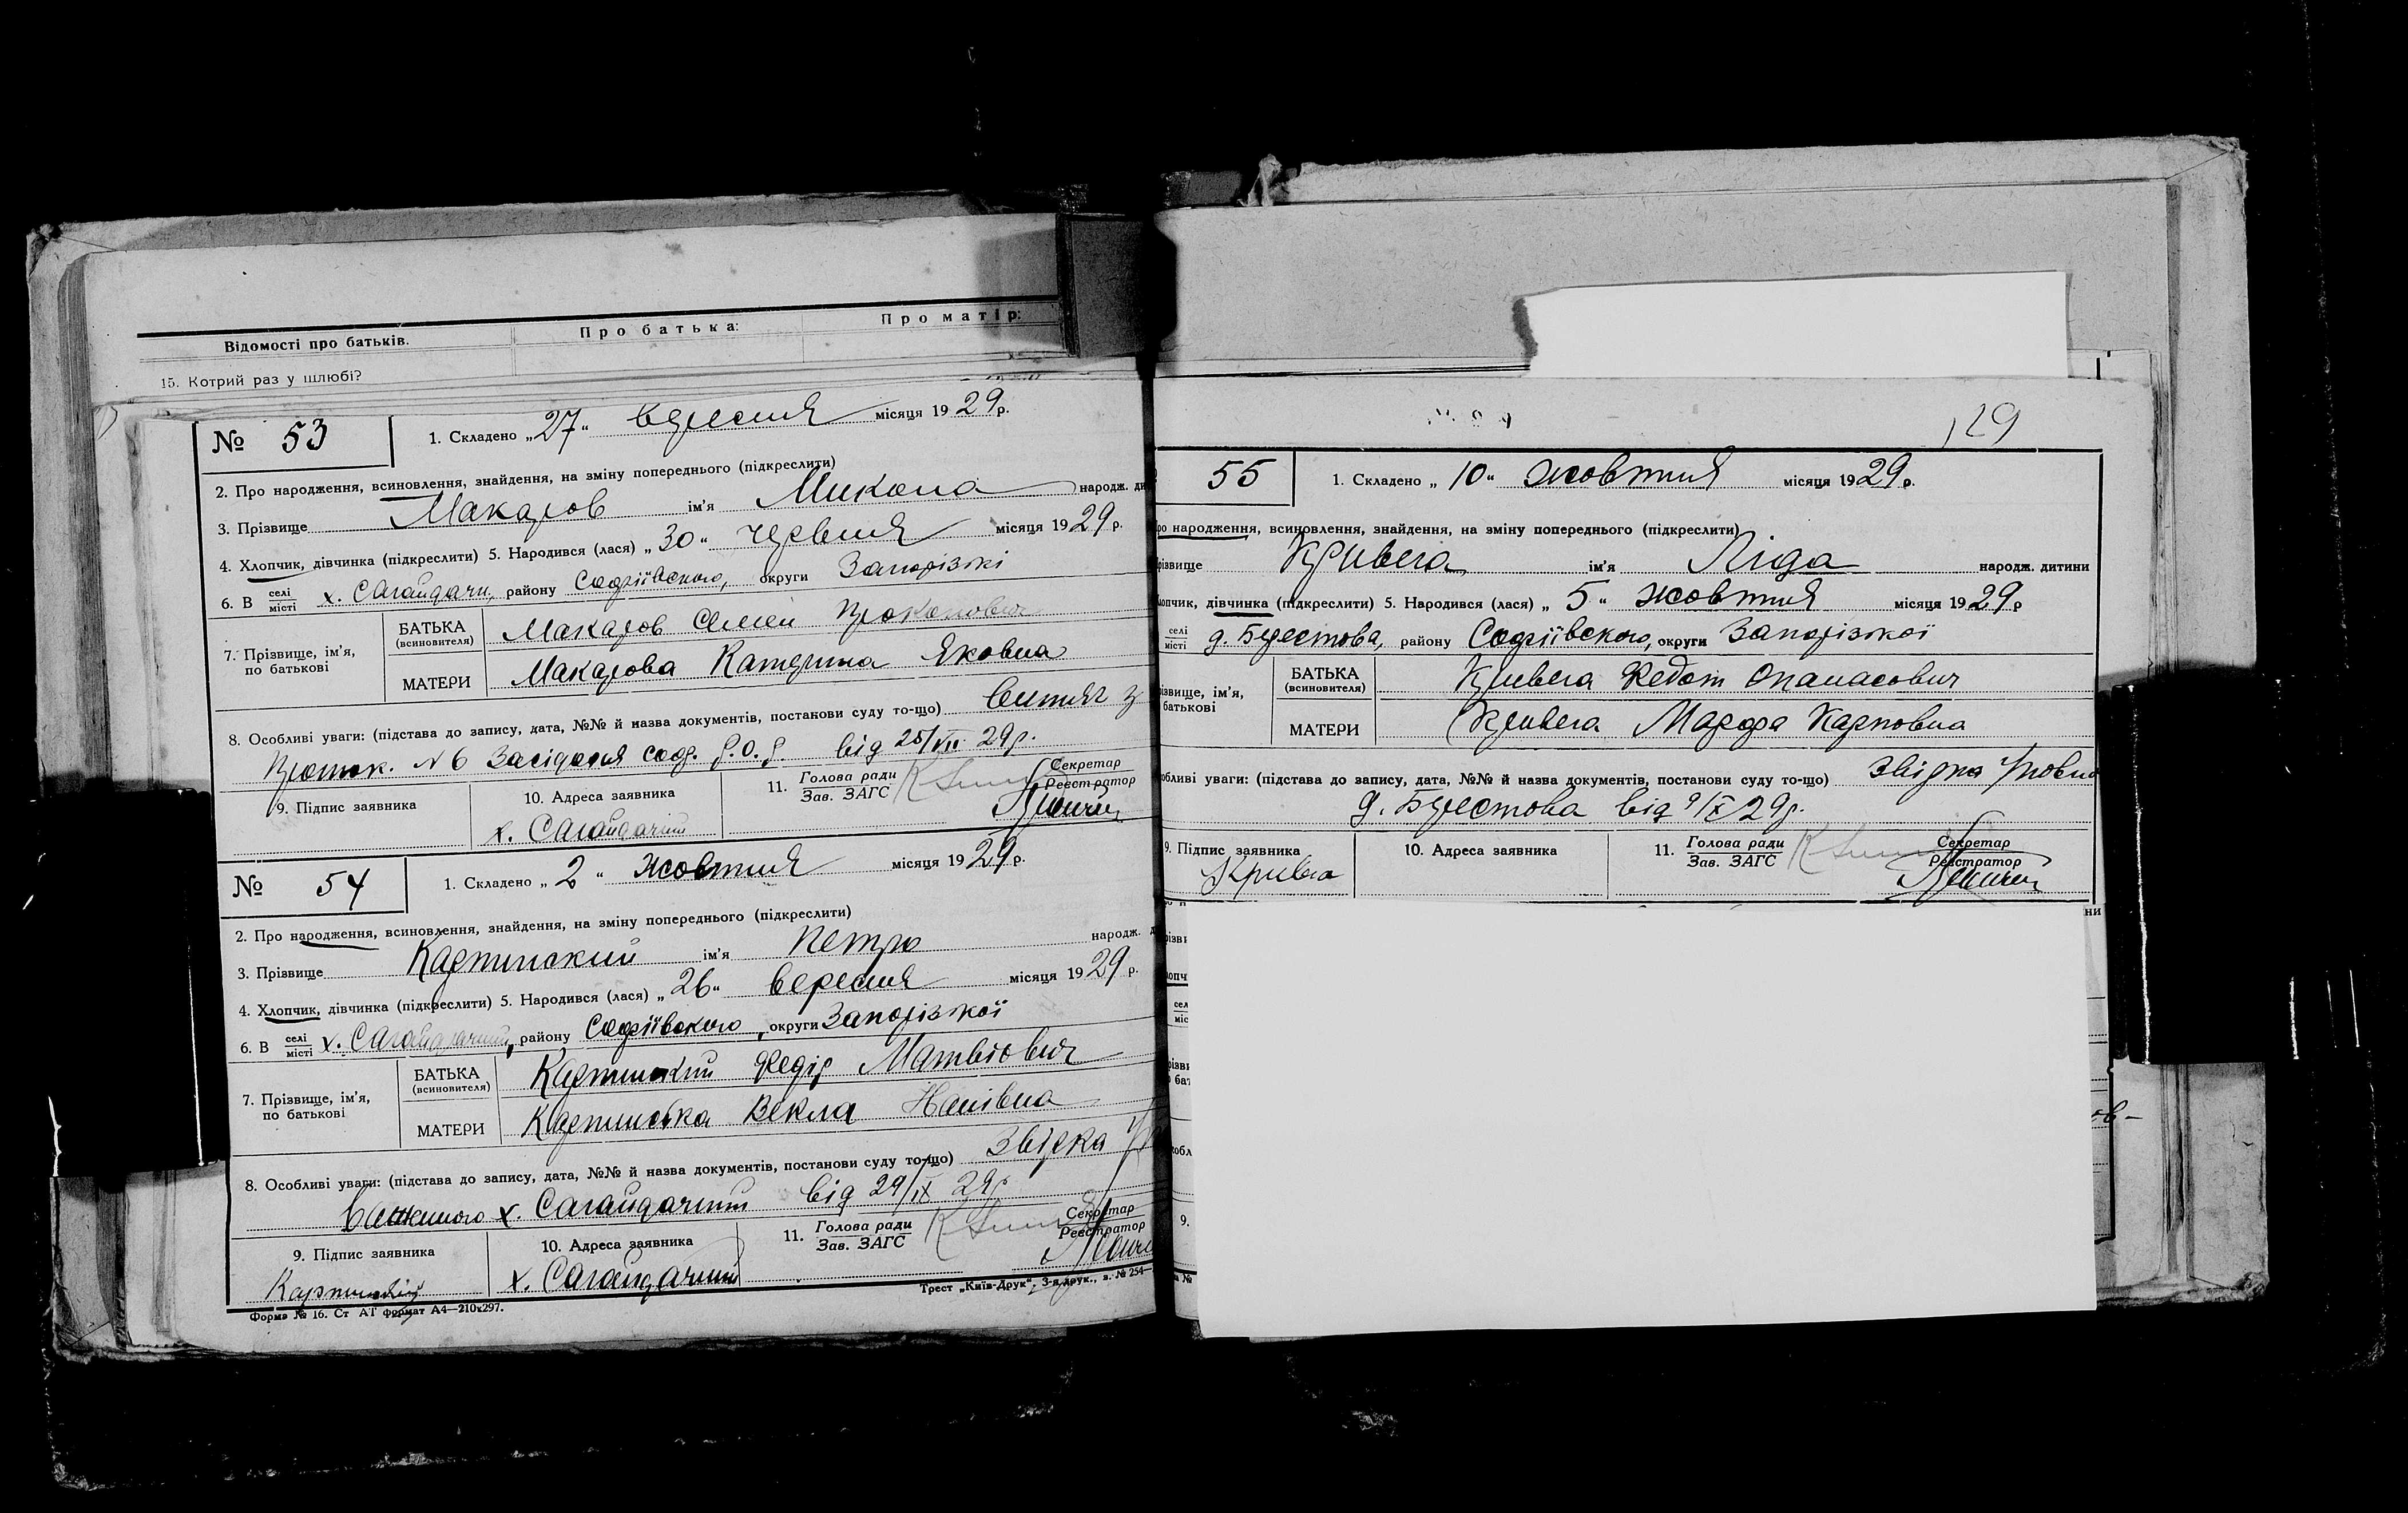 Відомості про батьків. Про батька: Про матір:
15. Котрий раз у шлюбі?
№ 53 1. Складено „27" вересня місяця 1929 р.
2. Про народження, всиновлення, знайдення, на зміну попереднього (підкреслити)
3. Прізвище Макаров ім'я Микола народж. ди
4. Хлопчик, дівчинка (підкреслити) 5. Народився (лася) „30" червня місяця 1929 р.
6. В селі/місті х. Сагайдачн, району Софіївского, округи Запорізькі
7. Прізвище, ім'я, по батькові
БАТЬКА (всиновителя) Макаров Семен Прокопович
МАТЕРИ Макарова Катерина Яковна
8. Особливі уваги: (підстава до запису, дата, №№ й назва документів, постанови суду то-що) Витяг з
Проток. № 6 Засідання соф. від 25/VII 29 р.
9. Підпис заявника 10. Адреса заявника 11. Голова ради/Зав. ЗАГС Секретар/Реєстратор
х. Сагайдачний
№ 54 1. Складено „2" жовтня місяця 1929 р.
2. Про народження, всиновлення, знайдення, на зміну попереднього (підкреслити)
3. Прізвище Картинский ім'я Петро народж. д
4. Хлопчик, дівчинка (підкреслити) 5. Народився (лася) „26" вересня місяця 1929 р.
6. В селі/місті х. Сагайдачний, району Софіївского, округи Запорізкої
7. Прізвище, ім'я, по батькові
БАТЬКА (всиновителя) Картинский Федір Матвієвич
МАТЕРИ Картинська Векла
8. Особливі уваги: (підстава до запису, дата, №№ й назва документів, постанови суду то-що) Звірка
х. Сагайдачний від 29/IX 29 р.
9. Підпис заявника 10. Адреса заявника 11. Голова ради/Зав. ЗАГС Секретар/Реєстратор
Картинский х. Сагайдачний
Форма № 16. Ст АТ формат А4—210х297. Трест „Київ-Друк", 3-я друк., з. № 254—
129
55 1. Складено „10" жовтня місяця 1929 р.
ро народження, всиновлення, знайдення, на зміну попереднього (підкреслити)
різвище Кривега ім'я Ліда народж. дитини
лопчик, дівчинка (підкреслити) 5. Народився (лася) „5" жовтня місяця 1929 р
селі/місті д. Берестова, району Софіївского, округи Запорізкої
різвище, ім'я, батькові
БАТЬКА (всиновителя) Кривега Федот Опанасович
МАТЕРИ Кривега Марфа Карповна
обливі уваги: (підстава до запису, дата, №№ й назва документів, постанови суду то-що) Звірка
д. Берестова від 9/X 29 р.
9. Підпис заявника 10. Адреса заявника 11. Голова ради/Зав. ЗАГС Секретар/Реєстратор
Кривега